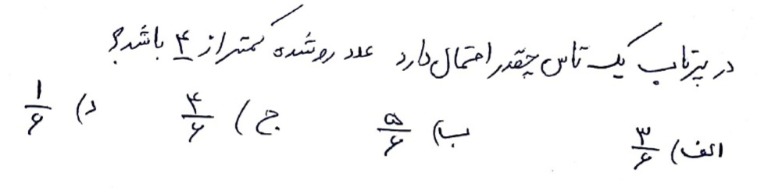 در پرتاب یک تاس چقدر احتمال دارد عدد رو شده کمتر از ۴ باشد؟
الف) ۳/۶ ب) ۵/۶ ج) ۴/۶ د) ۱/۶